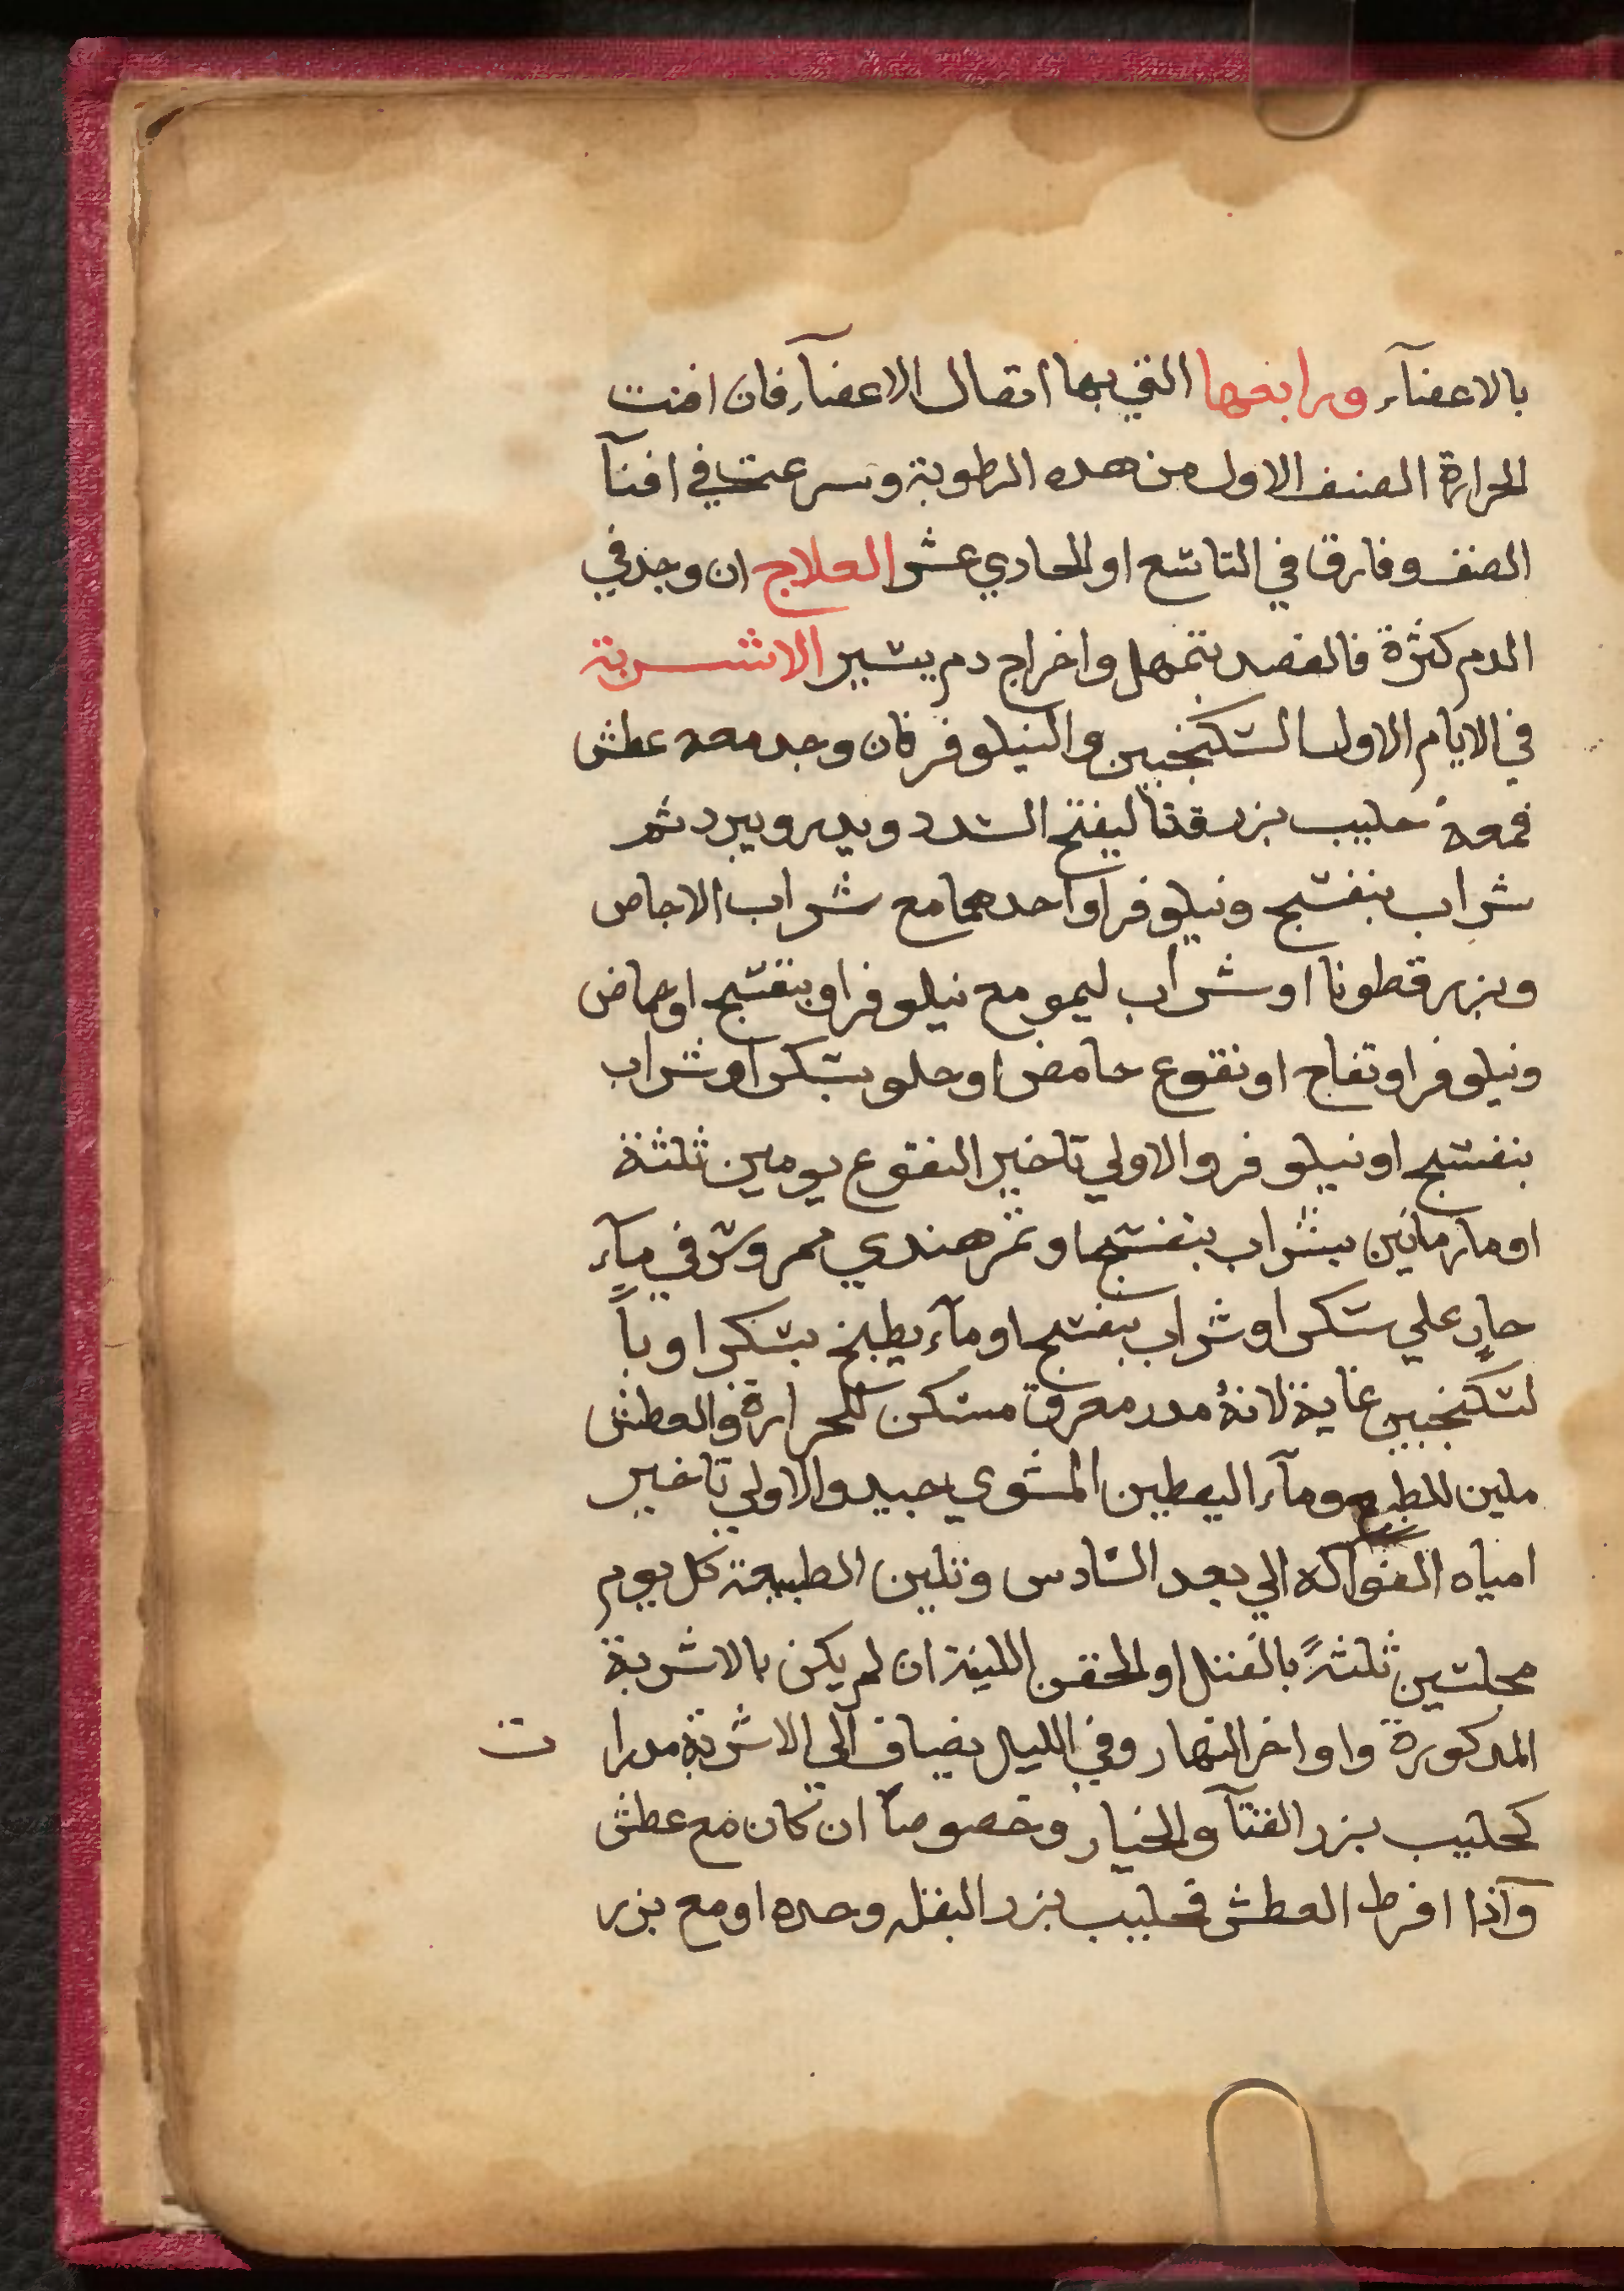 بالاعضآء ورابعها التي بها اتصال الاعضآء فان افنت
الحرارة الصنف الاول من هذه الرطوبة وسرعت في افنآ
الصنف وفارق في التاسع او الحادي عشر العلاج ان وجد في
الدم كثرة فالفصد بتمهل واخراج دم يسير الاشربة
في الايام الاول السكنجبين والنيلوفر فان وجد معه عطش
فمعه حليب بزر قثا ليفتح السدد ويدر ويبرد ثم
شراب بنفسج ونيلوفر او احدهما مع شراب الاجاص
وبزر قطونا او شراب ليمو مع نيلوفر او بنفسج او حماض
ونيلوفر او تفاح او نقوع حامض او حلو بسكر او شراب
بنفسج او نيلوفر والاولي تاخير النقوع يومين ثلثة
او مارمانين بشراب بنفسج او تمر هندي ممروس في مآء
حار علي سكر او شراب بنفسج او مآء بطيخ بسكر او با
لسكنجبين غاية لانه مدر معرق مسكن للحرارة والعطش
ملين للطبع ومآء اليقطين المشوي جيد والاولي تاخير
امياه الفواكه الي بعد السادس وتلين الطبيعة كل يوم
مجلسين ثلثةً بالفتل او الحقن اللينة ان لم يكن بالاشربة
المذكورة واواخر النهار وفي الليل يضاف الي الاشربة مدرا ت
كحليب بزر القثآ والخيار وخصوصاً ان كان مع عطش
وآذا افرط العطش فحليب بزر البقله وحده او مع بزر